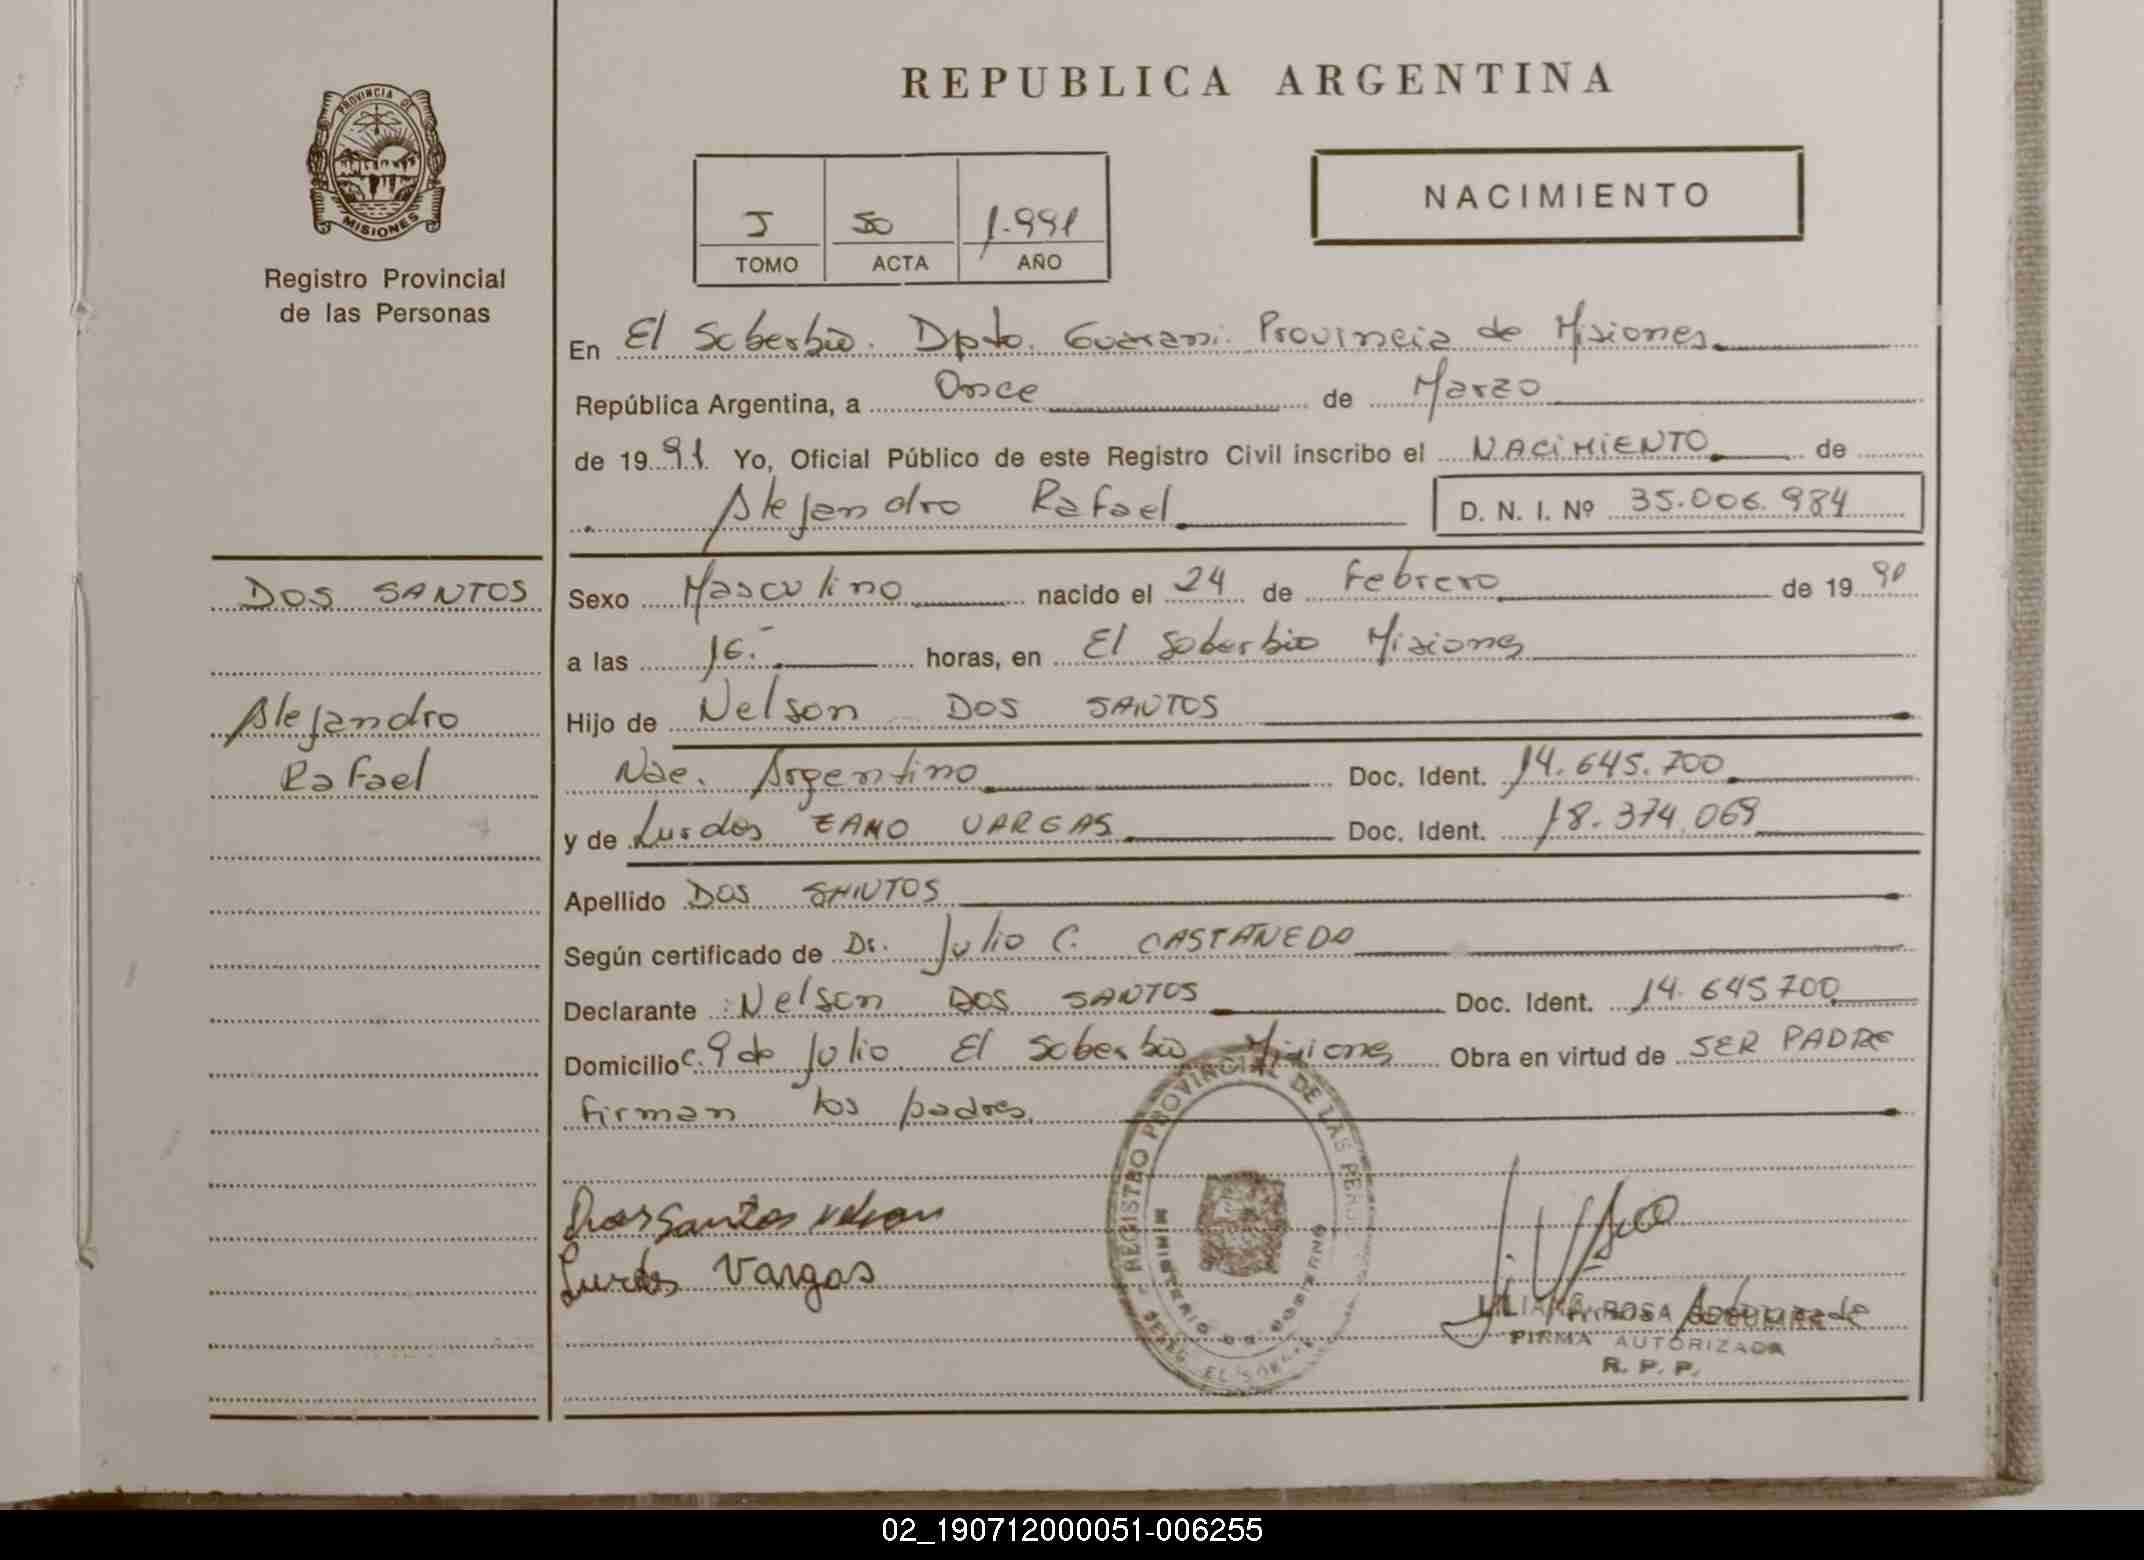 REPUBLICA ARGENTINA
PROVINCIA DE
MISIONES
Registro Provincial
de las Personas
NACIMIENTO
J 50 1.991
TOMO ACTA AÑO
En El Soberbio. Dpto. Guarani. Provincia de Misiones
República Argentina, a Once de Marzo
de 1991. Yo, Oficial Público de este Registro Civil inscribo el NACIMIENTO de
Alejandro Rafael D. N. I. Nº 35.006.984
DOS SANTOS
Alejandro
Rafael
Sexo Masculino nacido el 24 de Febrero de 19
a las 16.- horas, en El Soberbio Misiones
Hijo de Nelson DOS SANTOS
Nac. Argentino Doc. Ident. 14.645.700
y de Lurdes VARGAS Doc. Ident. 18.374.069
Apellido DOS SANTOS
Según certificado de Dr. Julio C. CASTAÑEDA
Declarante : Nelson DOS SANTOS Doc. Ident. 14.645700
Domicilio C. 9 de Julio El Soberbio Misiones Obra en virtud de SER PADRE
Firman los padres.
Dos Santos Nelson
Lurdes Vargas
REGISTRO PROVINCIAL DE LAS
MINISTERIO DE GOBIERNO
LILIANA ROSA
FIRMA AUTORIZADA
R. P. P.
02_190712000051-006255